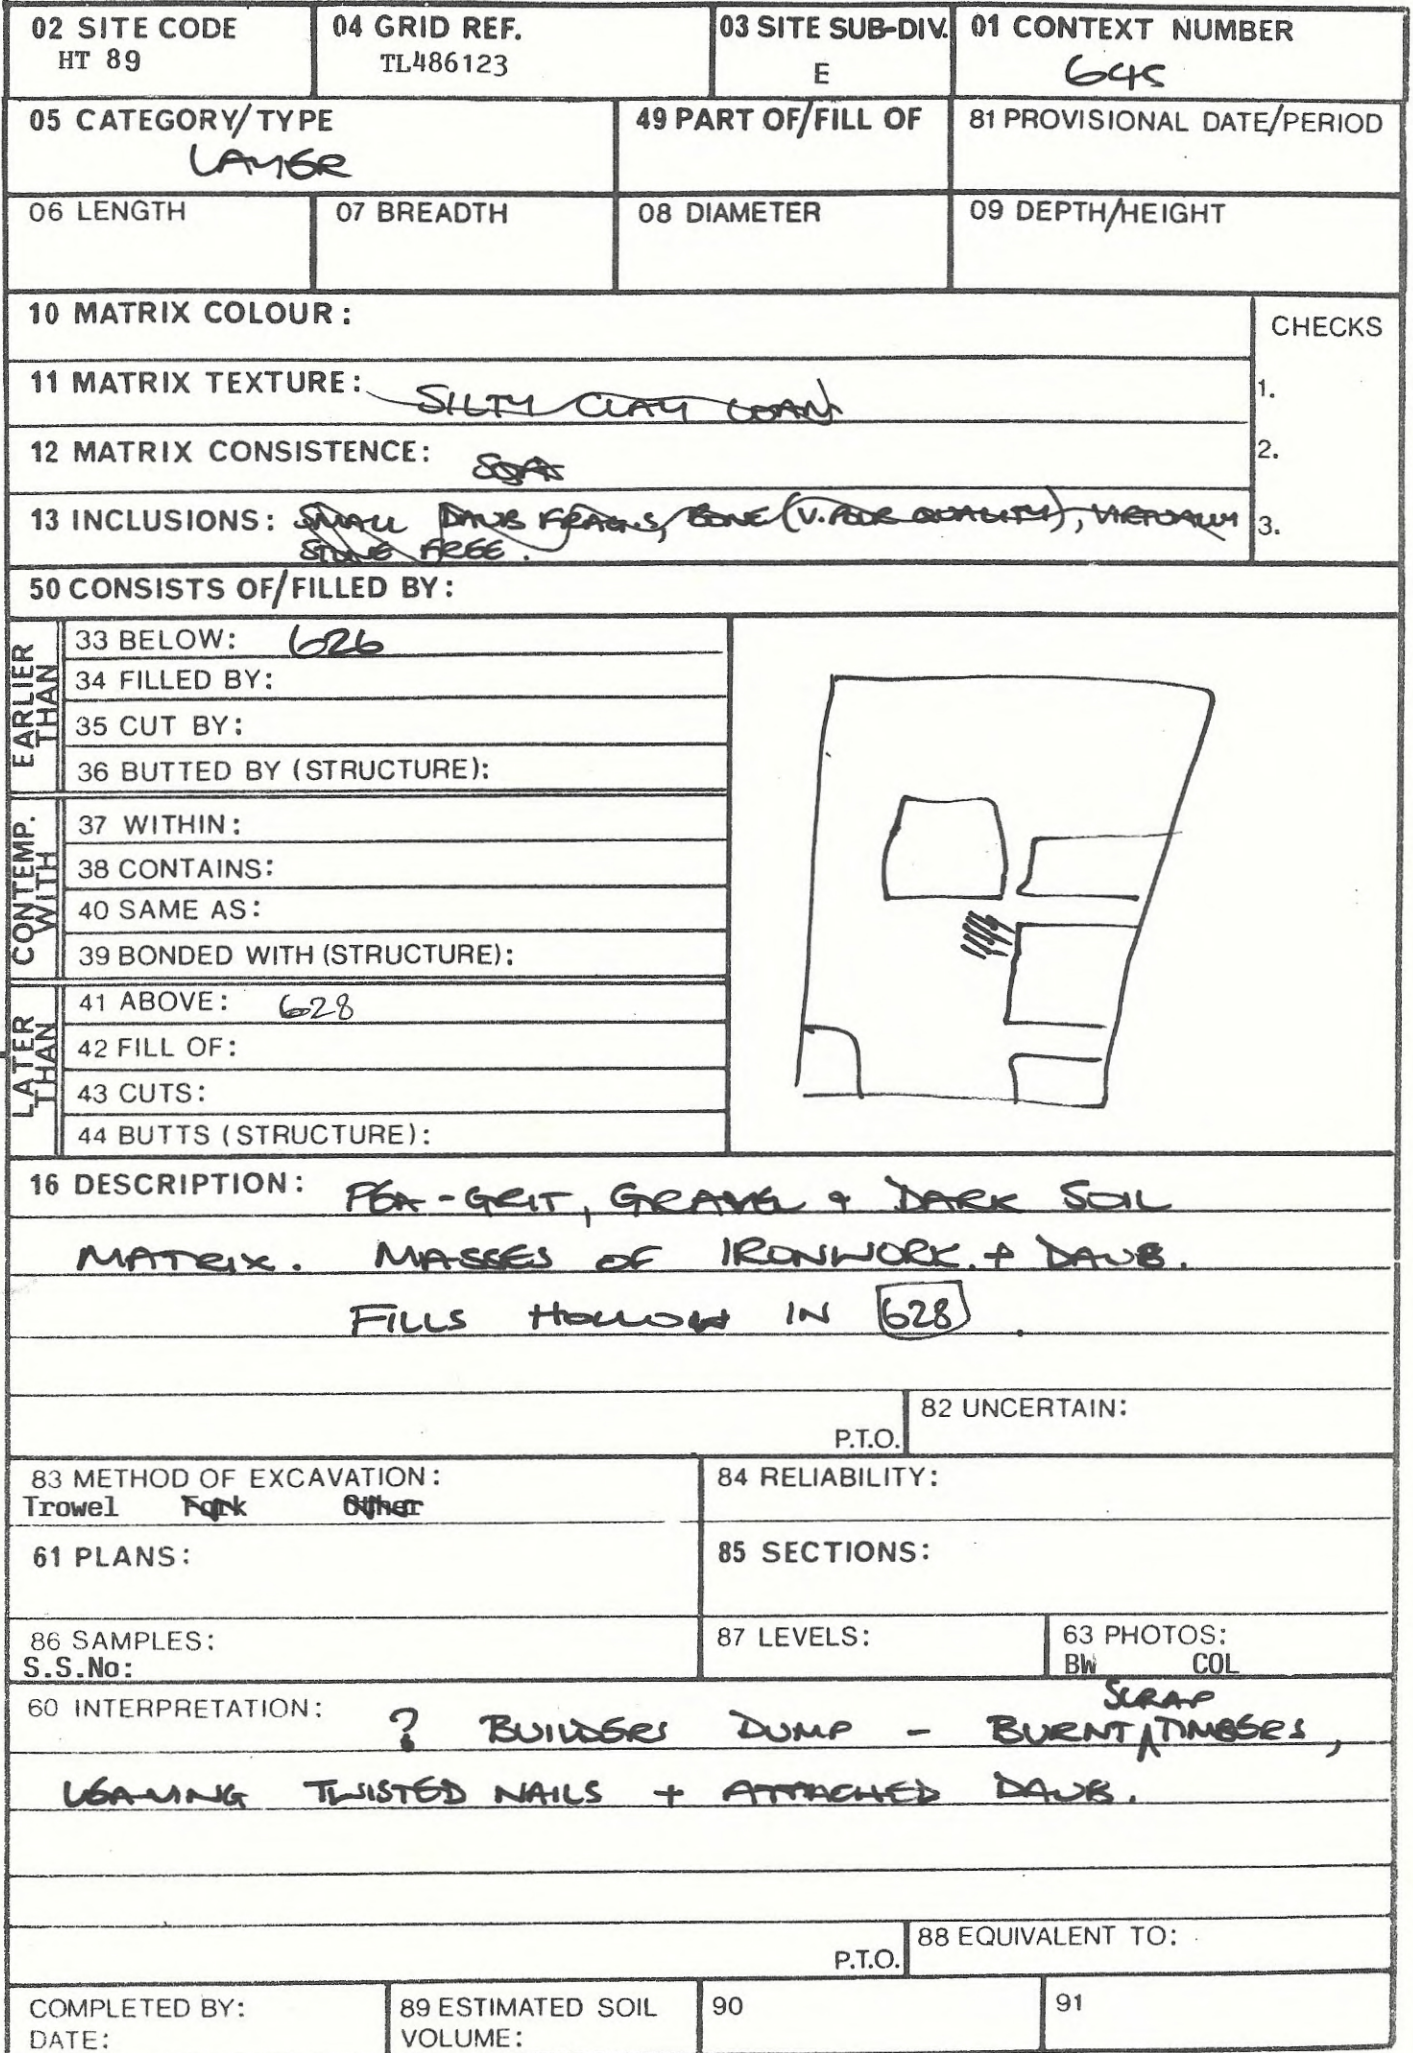 02 SITE CODE 04 GRID REF. 03 SITE SUB-DIV. 01 CONTEXT NUMBER
HT 89 TL486123 E 645
05 CATEGORY/TYPE 49 PART OF/FILL OF 81 PROVISIONAL DATE/PERIOD
LAYER
06 LENGTH 07 BREADTH 08 DIAMETER 09 DEPTH/HEIGHT
10 MATRIX COLOUR:
CHECKS
11 MATRIX TEXTURE: SILTY CLAY LOAM
1.
12 MATRIX CONSISTENCE:
2.
13 INCLUSIONS: SMALL DAUB FRAGS, BONE (V. POOR QUALITY), VIRTUALLY
3.
STONE FREE.
50 CONSISTS OF/FILLED BY:
EARLIER THAN
33 BELOW: 626
34 FILLED BY:
35 CUT BY:
36 BUTTED BY (STRUCTURE):
CONTEMP. WITH
37 WITHIN:
38 CONTAINS:
40 SAME AS:
39 BONDED WITH (STRUCTURE):
LATER THAN
41 ABOVE: 628
42 FILL OF:
43 CUTS:
44 BUTTS (STRUCTURE):
16 DESCRIPTION: PEA-GRIT, GRAVEL + DARK SOIL
MATRIX. MASSES OF IRONWORK. + DAUB.
FILLS HOLLOW IN 628.
P.T.O. 82 UNCERTAIN:
83 METHOD OF EXCAVATION: 84 RELIABILITY:
Trowel Fork Other
61 PLANS: 85 SECTIONS:
86 SAMPLES: 87 LEVELS: 63 PHOTOS:
S.S.No: BW COL
60 INTERPRETATION: ? BUILDERS DUMP - BURNT SCRAP TIMBERS,
LEAVING TWISTED NAILS + ATTACHED DAUB.
P.T.O. 88 EQUIVALENT TO:
COMPLETED BY: 89 ESTIMATED SOIL 90 91
DATE: VOLUME: